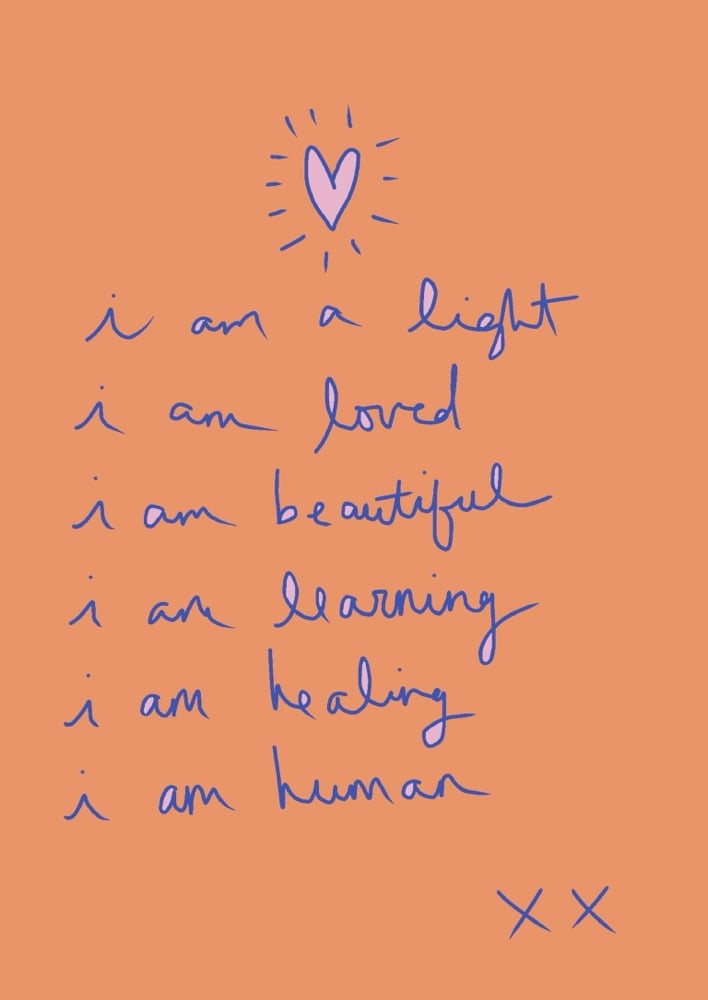 i am a light
i am loved
i am beautiful
i am learning
i am healing
i am human
xx